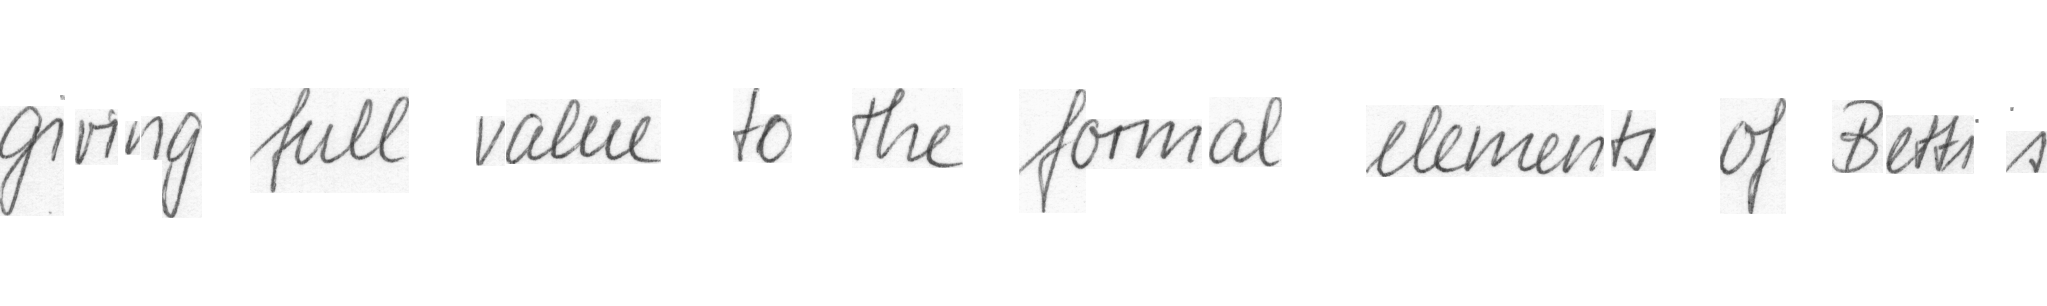 giving full value to the formal elements of Betti's